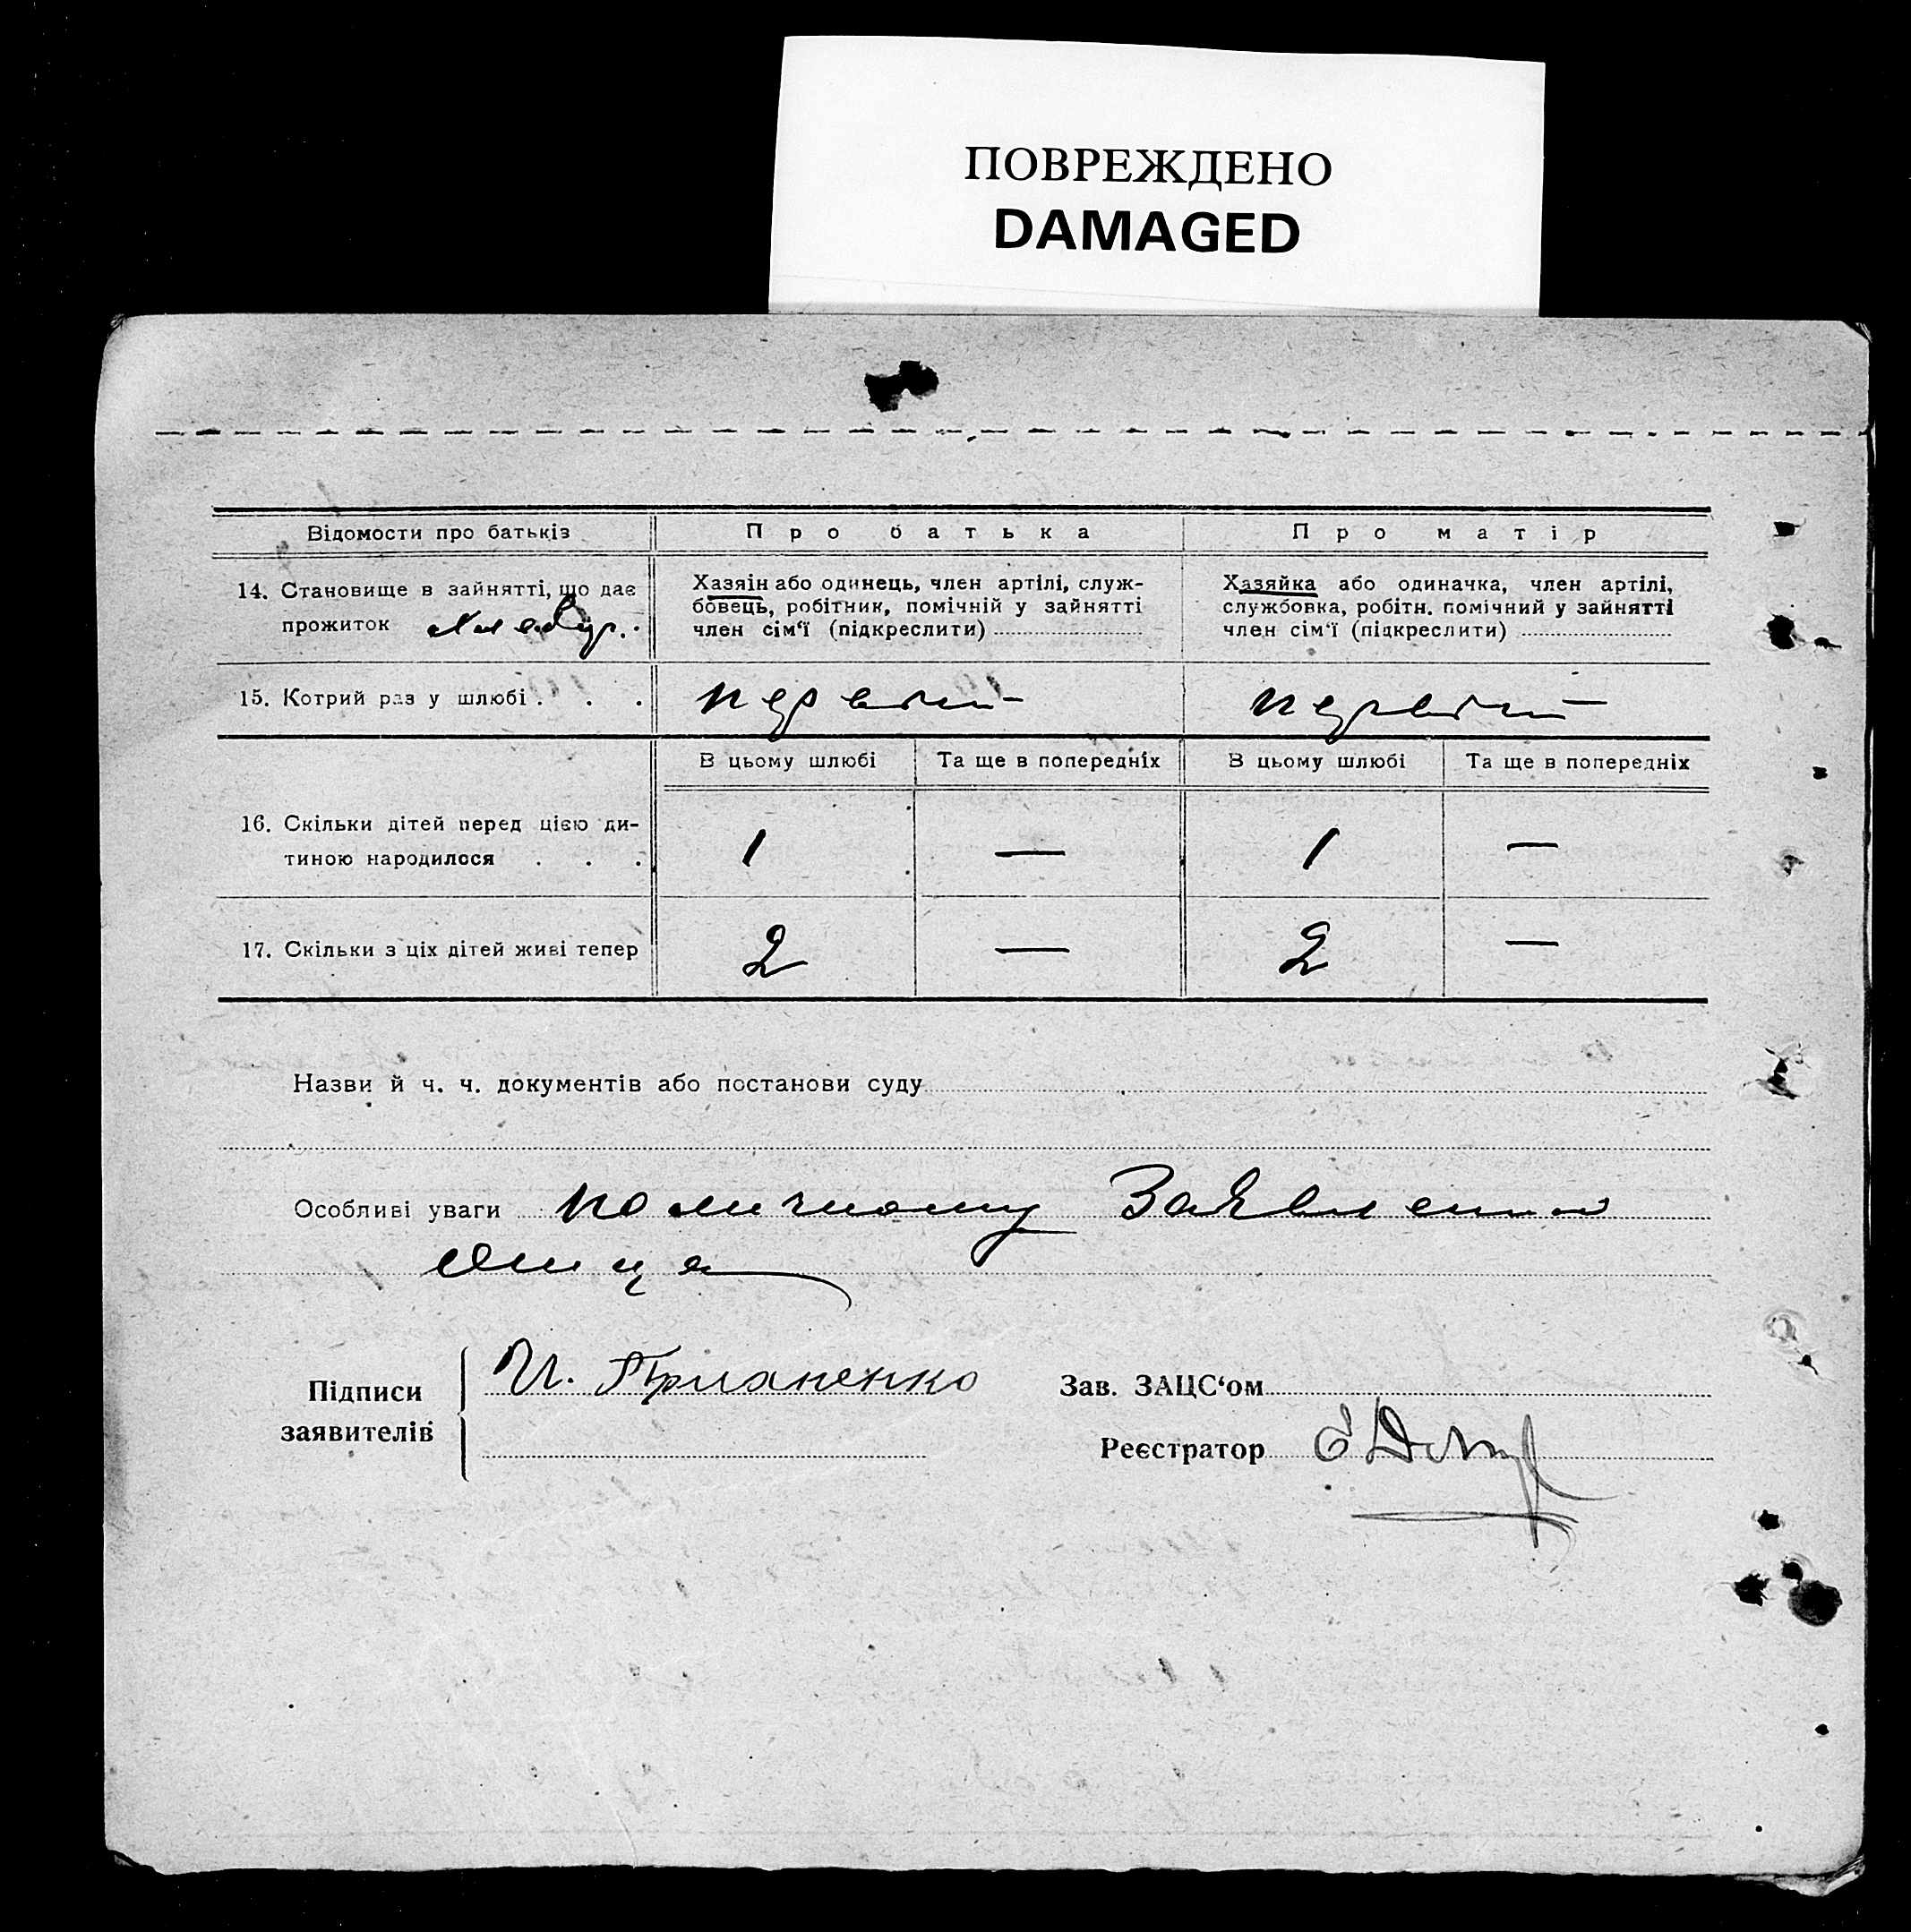 ПОВРЕЖДЕНО
DAMAGED
Відомости про батьків
Про батька
Про матір
14. Становище в зайнятті, що дає
прожиток
Хазяін або одинець, член артілі, служ-
бовець, робітник, помічній у зайнятті
член сім'ї (підкреслити)
Хазяйка або одиначка, член артілі,
службовка, робітн. помічний у зайнятті
член сім'ї (підкреслити)
15. Котрий раз у шлюбі . . .
первый
первый
В цьому шлюбі
Та ще в попередніх
В цьому шлюбі
Та ще в попередніх
16. Скільки дітей перед цією ди-
тиною народилося . . .
1 — 1 —
17. Скільки з ціх дітей живі тепер
2 — 2 —
Назви й ч. ч. документів або постанови суду
Особливі уваги по личному Заявлению
Отца
Підписи
заявителів
И.
Зав. ЗАЦС'ом
Реєстратор